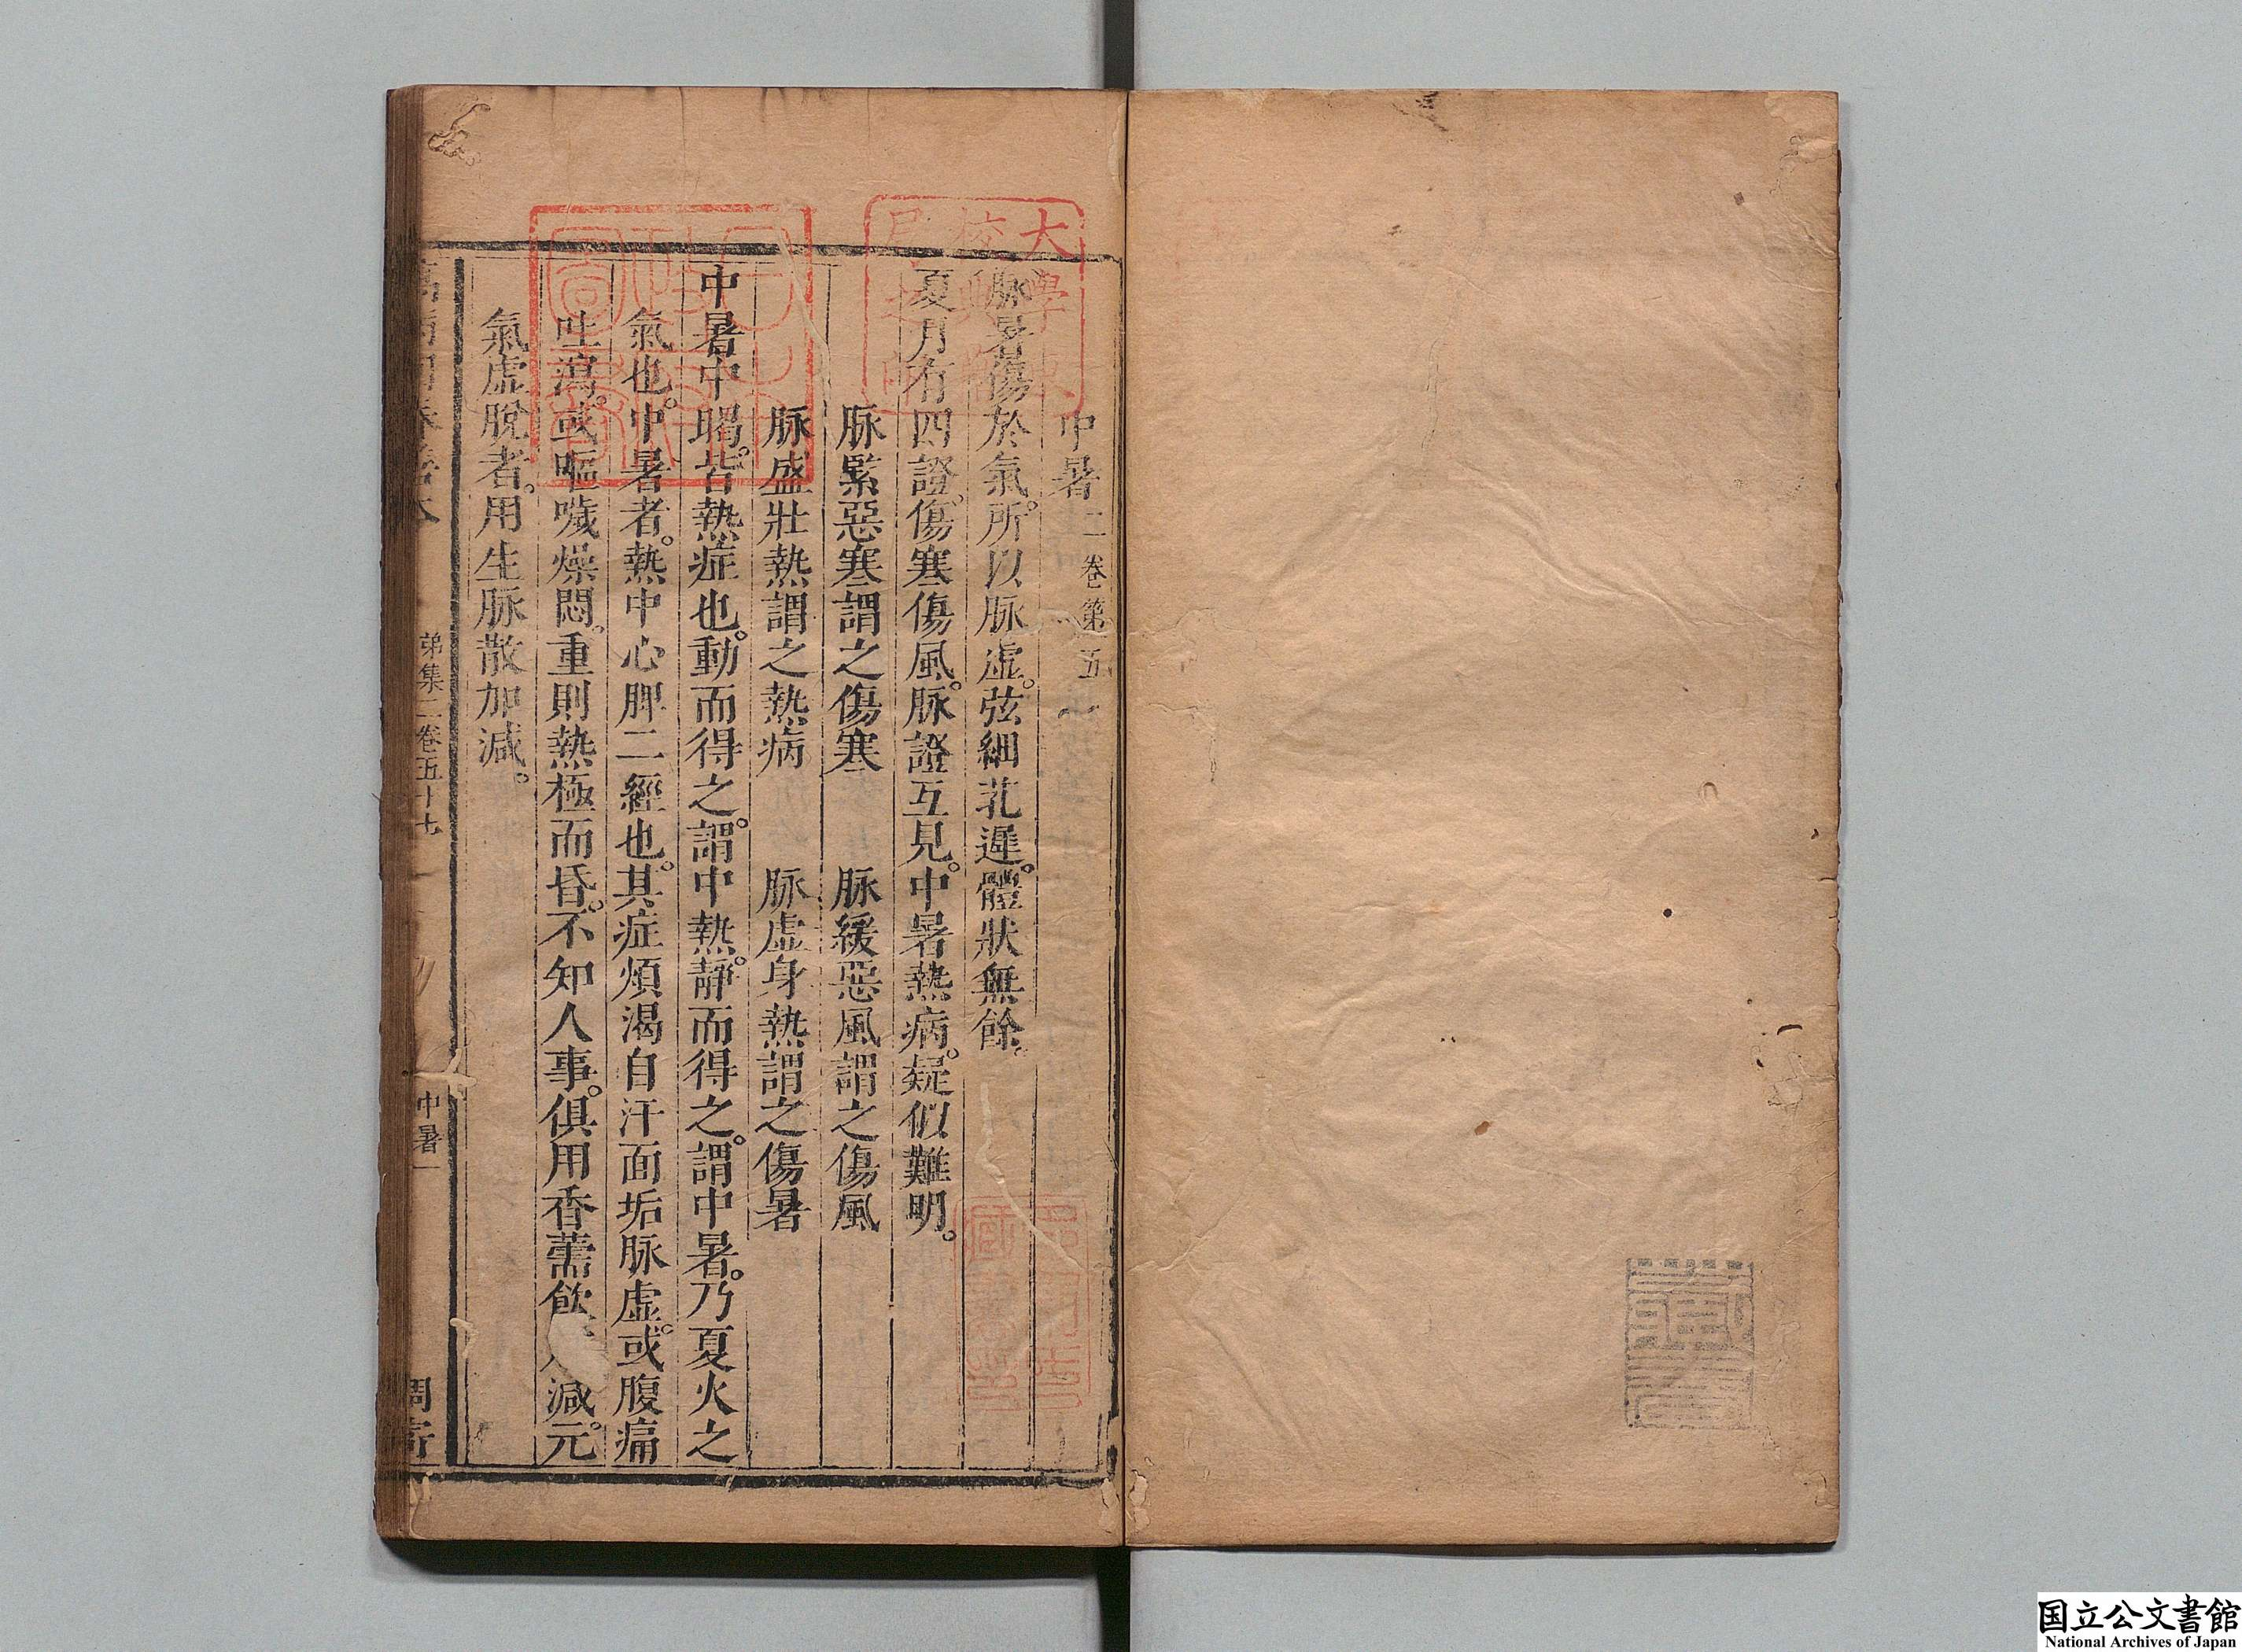 中暑 二卷第五
脉暑傷於氣。所以脉虛。弦細芤遲。體狀無餘。
夏月有四證。傷寒傷風。脉證互見。中暑熱病。疑似難明。
脉緊惡寒謂之傷寒 脉緩惡風謂之傷風
脉盛壯熱謂之熱病 脉虛身熱謂之傷暑
中暑中暍。皆熱症也。動而得之。謂中熱。靜而得之。謂中暑。乃夏火之
氣也。中暑者。熱中心脾二經也。其症煩渴自汗面垢脉虛。或腹痛
吐瀉。或嘔噦燥悶。重則熱極而昏。不知人事。俱用香薷飲減。元
氣虛脫者。用生脉散加減。
萬病回春善本 弟集二卷五十七 中暑一 周
大學校
藏書
国立公文書館
National Archives of Japan